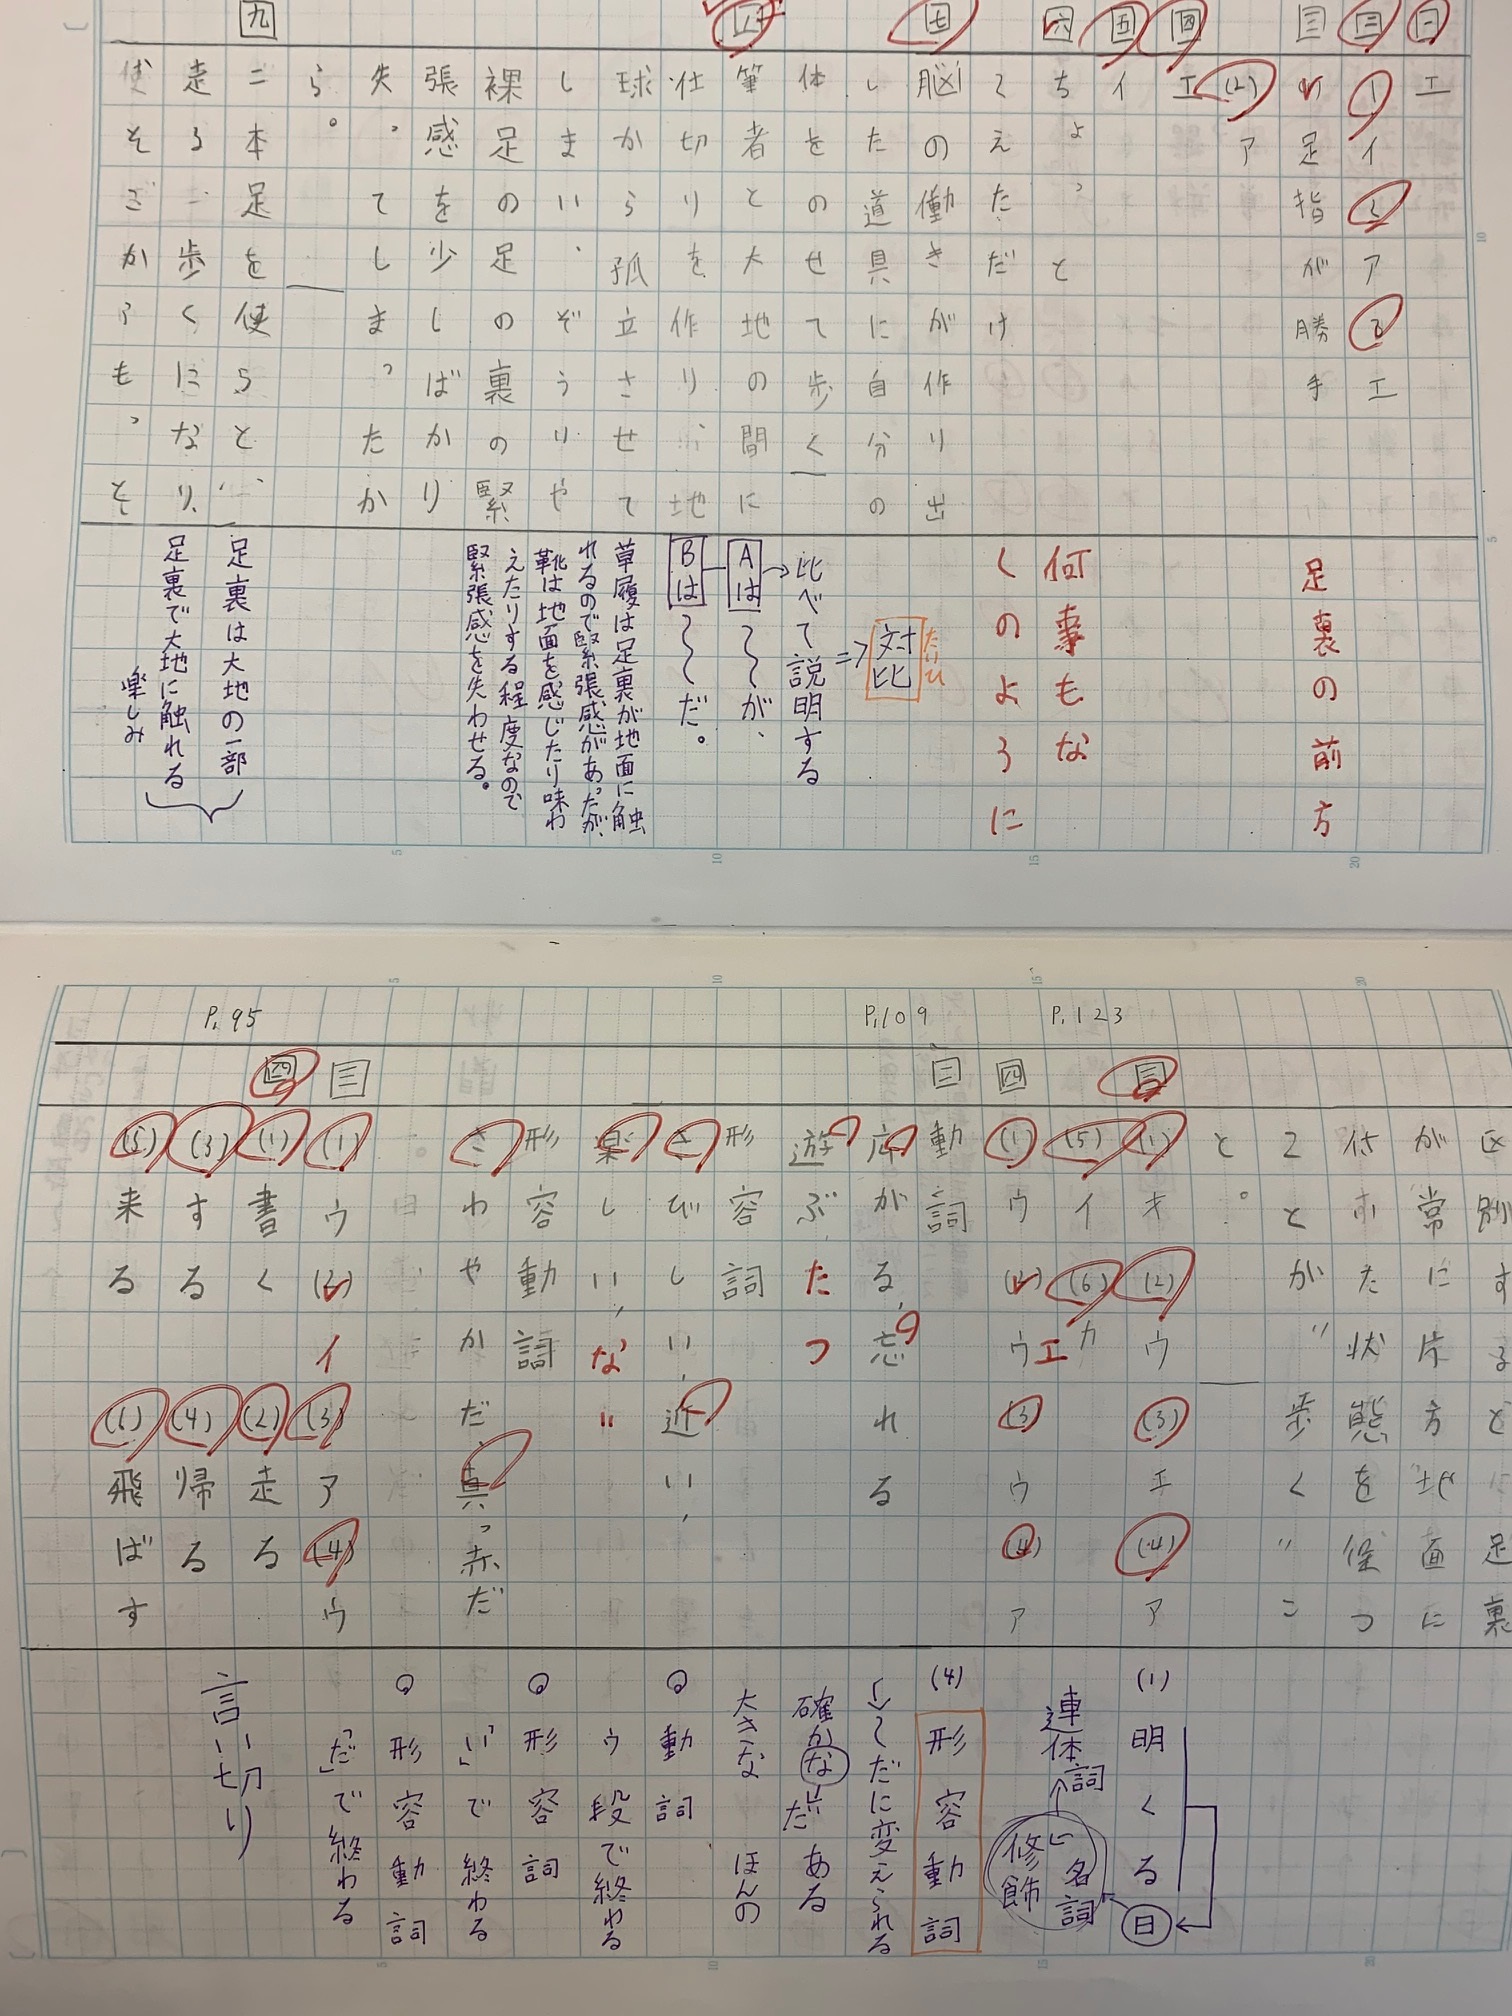 一 エ
二 (1) イ (2) ア (3) エ
三 (1) 足指が勝手
足裏の前方
(2) ア
四 エ
五 イ
六 ちょっと
何事もな
くのように
くえただけ
七 脳の働きが作り出
した道具に自分の
体をのせて歩く
八 筆者と大地の間に
仕切りを作り、地
球から孤立させて
しまい、ぞうりや
裸足の足の裏の緊
張感を少しばかり
失ってしまったか
ら。
九 二本足を使うと、
走る、歩くになり、
比べて説明する
⇒対比
たいひ
Aは〜〜が、
Bは〜〜だ。
草履は足裏が地面に触
れるので緊張感があったが、
靴は地面を感じたり味わ
えたりする程度なので
緊張感を失わせる。
足裏は大地の一部
足裏で大地に触れる
楽しみ
区別すると
足裏
が常に片方地面に
付いた状態を保つ
ことが"歩く"こ
と。
P.123
三 (1) オ (2) ウ (3) エ (4) ア
(5) イ (6) カ
エ
四 (1) ウ (2) ウ (3) ウ (4) ア
P.109
三 動詞
広がる、忘れる
遊ぶ たつ
形容詞
さびしい、近い、
楽しい、な〃
形容動詞
さわやかだ、真っ赤だ
P.95
三 (1) ウ (2) イ (3) ア (4) ウ
四 (1) 書く (2) 走る
(3) する (4) 帰る
(5) 来る (6) 飛ばす
(1) 明くる日
連体詞
名詞
修飾
(4) 形容動詞
〜だに変えられる
確かな だ ある
大きな ほんの
動詞
ウ段で終わる
形容詞
「い」で終わる
形容動詞
「だ」で終わる
言い切り